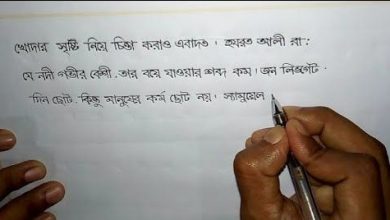 খোদার সৃষ্টি নিয়ে চিন্তা করাও এবাদত। হযরত আলী রাঃ
যে নদী গভীর বেশী, তার বয়ে যাওয়ার শব্দ কম। জন লিভগেট
দিন ছোট কিন্তু মানুষের কর্ম ছোট নয়। স্যামুয়েল